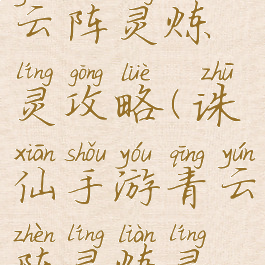 云阵灵炼
líng gōng lüè zhū
灵攻略(诛
xiān shǒu yóu qīng yún
仙手游青云
zhèn líng liàn líng
阵灵炼灵